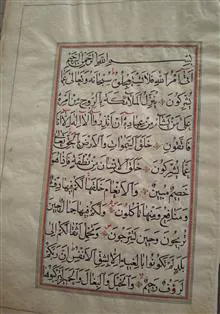 بسم الله الرحمن الرحيم
اتى امر الله فلا تستعجلوه سبحانه وتعالى عما
يشركون ينزل الملائكة بالروح من امره
على من يشاء من عباده ان انذروا انه لا اله الا انا
فاتقون خلق السموات والارض بالحق تعالى
عما يشركون خلق الانسان من نطفة فاذا هو
خصيم مبين والانعام خلقها لكم فيها دفء
ومنافع ومنها تأكلون ولكم فيها جمال حين
تريحون وحين تسرحون وتحمل اثقالكم الى
بلد لم تكونوا بالغيه الا بشق الانفس ان ربكم
لرؤف رحيم والخيل والبغال والحمير لتركبوها